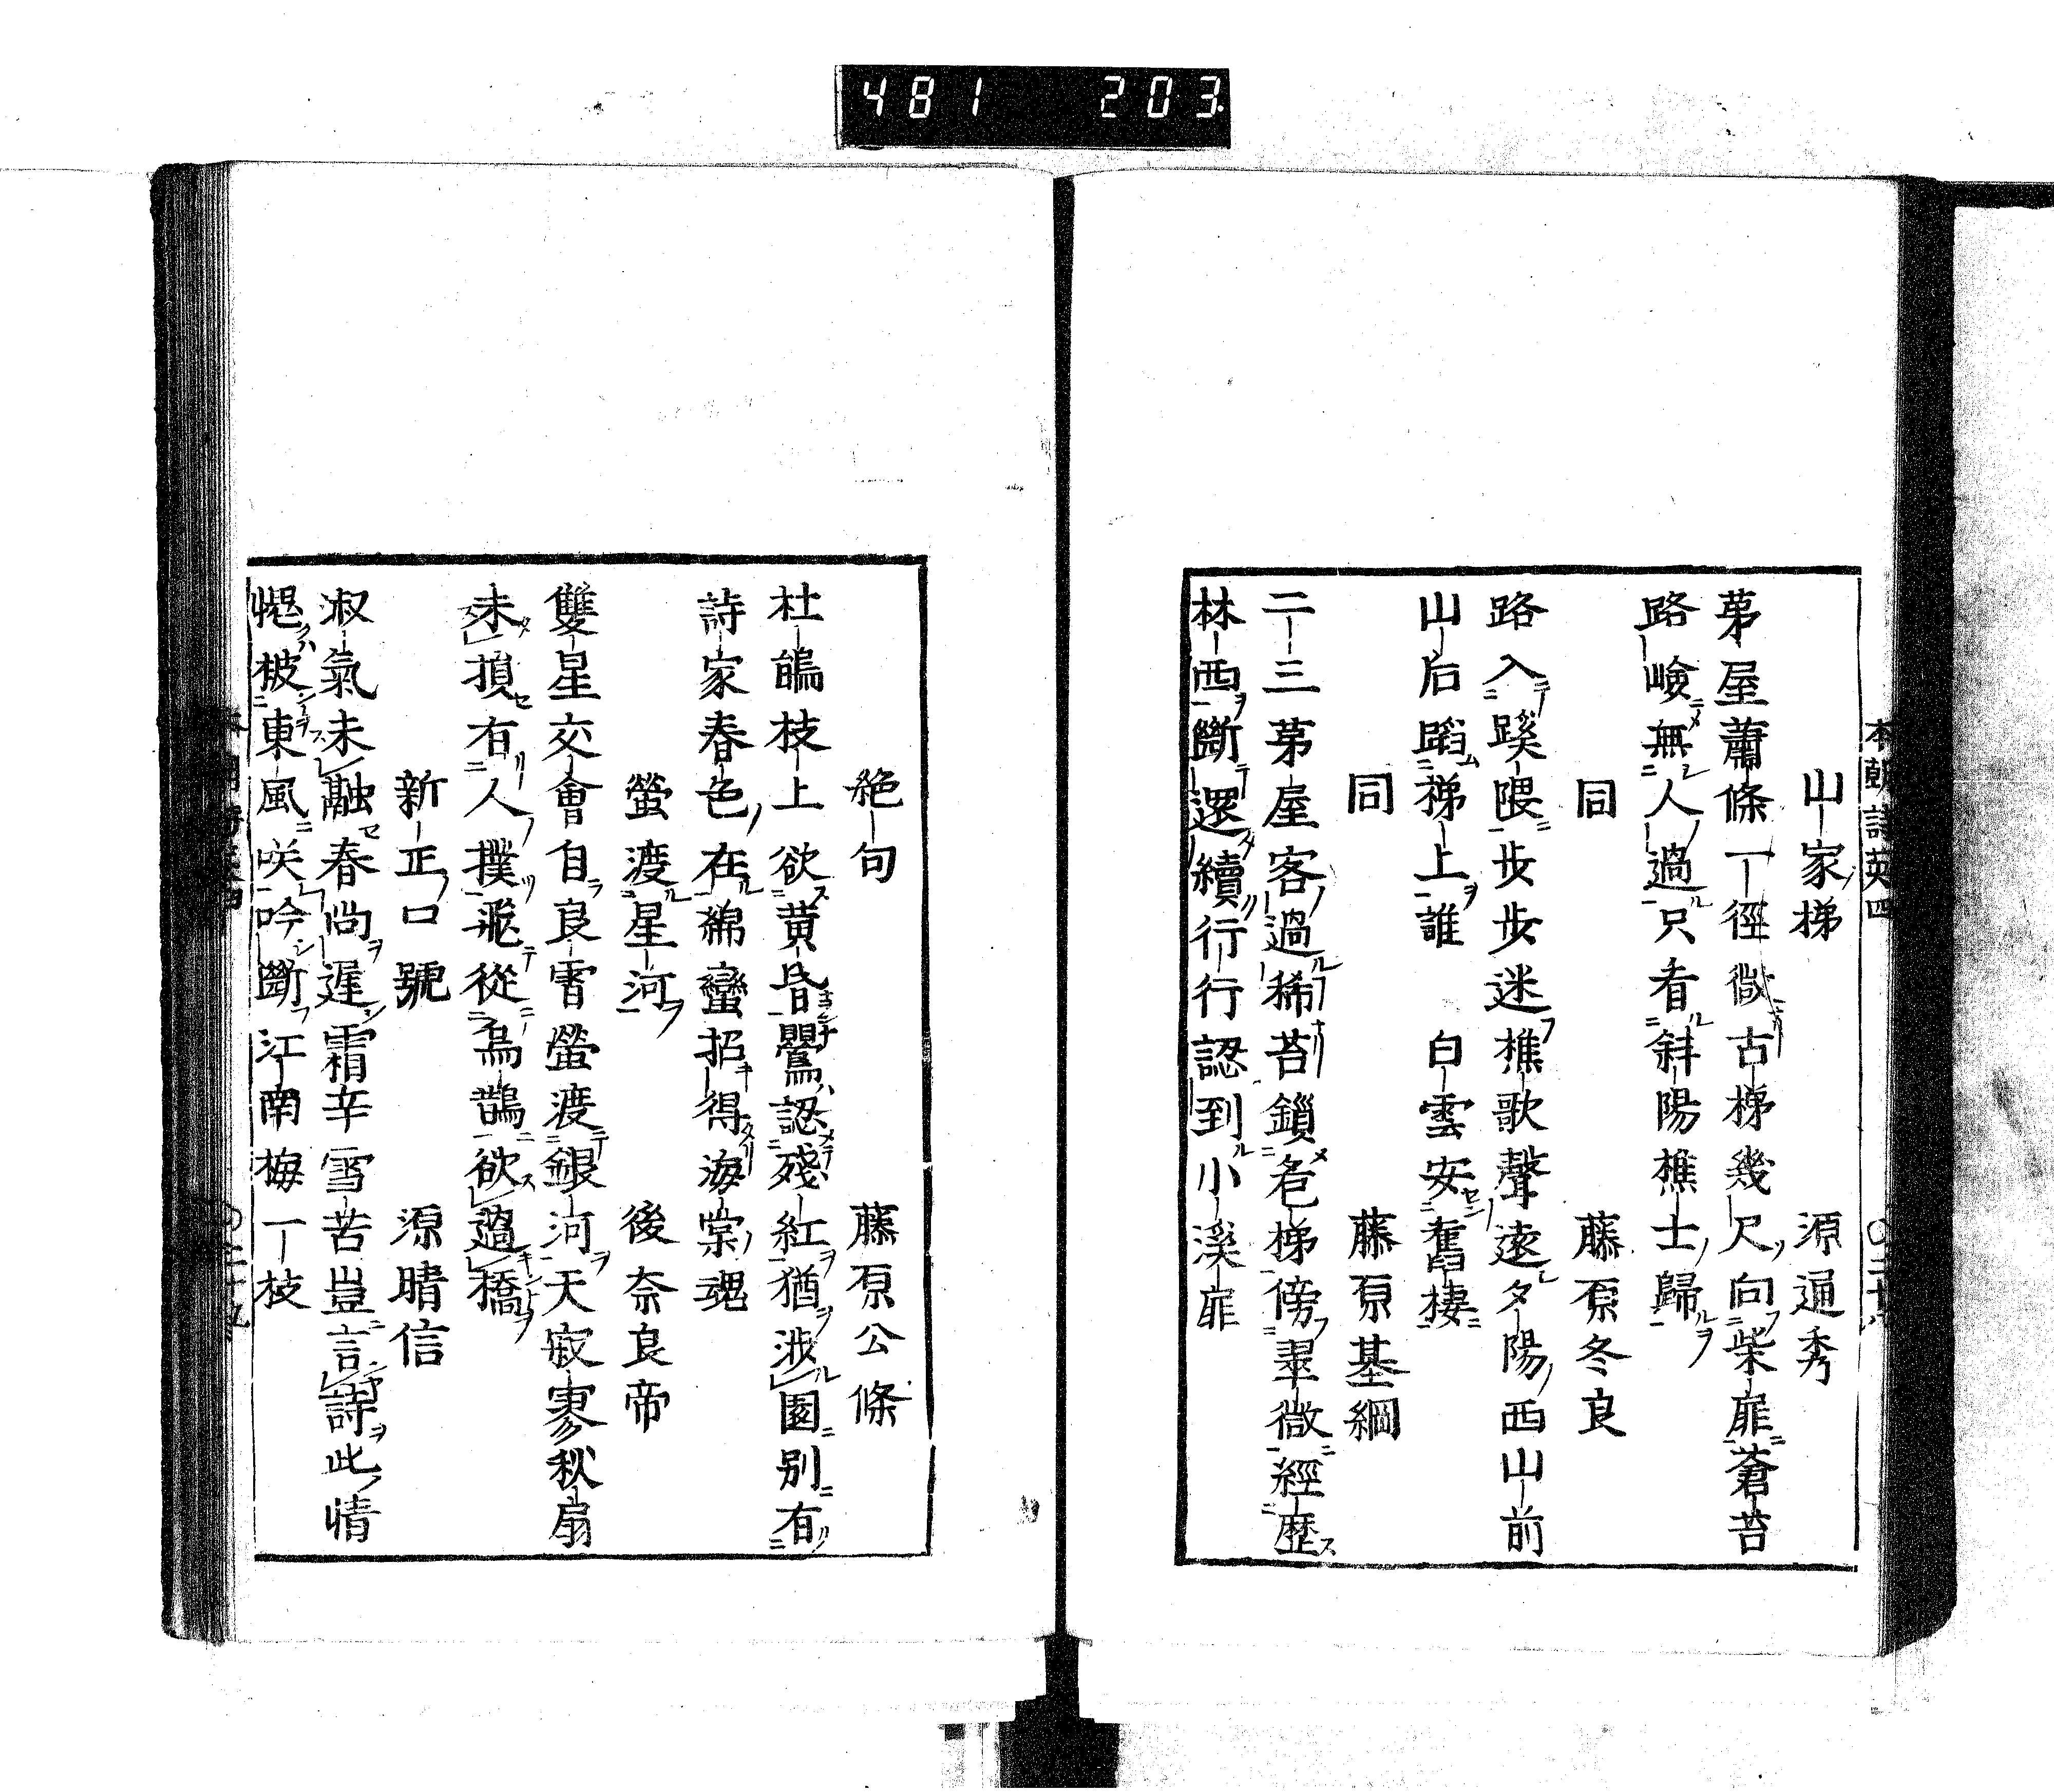 481 203
本朝詩英四
山家梯 源通秀
茅屋蕭條一徑微古梯幾尺向柴扉蒼苔
路嶮無人過只看斜陽樵士歸
同 藤原冬良
路入蹊隈步步迷樵歌聲遠夕陽西山前
山后蹈梯上誰 白雲安舊棲
同 藤原基綱
二三茅屋客過稀苔鎖危梯傍翠微經歴
林西斷還續行行認到小溪扉
絶句 藤原公條
杜鵑枝上欲黄昏鸎認殘紅猶涉園別有
詩家春色在綿蠻招得海棠魂
螢渡星河 後奈良帝
雙星交會自良霄螢渡銀河天寂寥秋扇
未損有人撲飛從烏鵲欲過橋
新正口號 源晴信
淑氣未融春尚遲霜辛雪苦豈言詩此情
愧被東風咲吟斷江南梅一枝